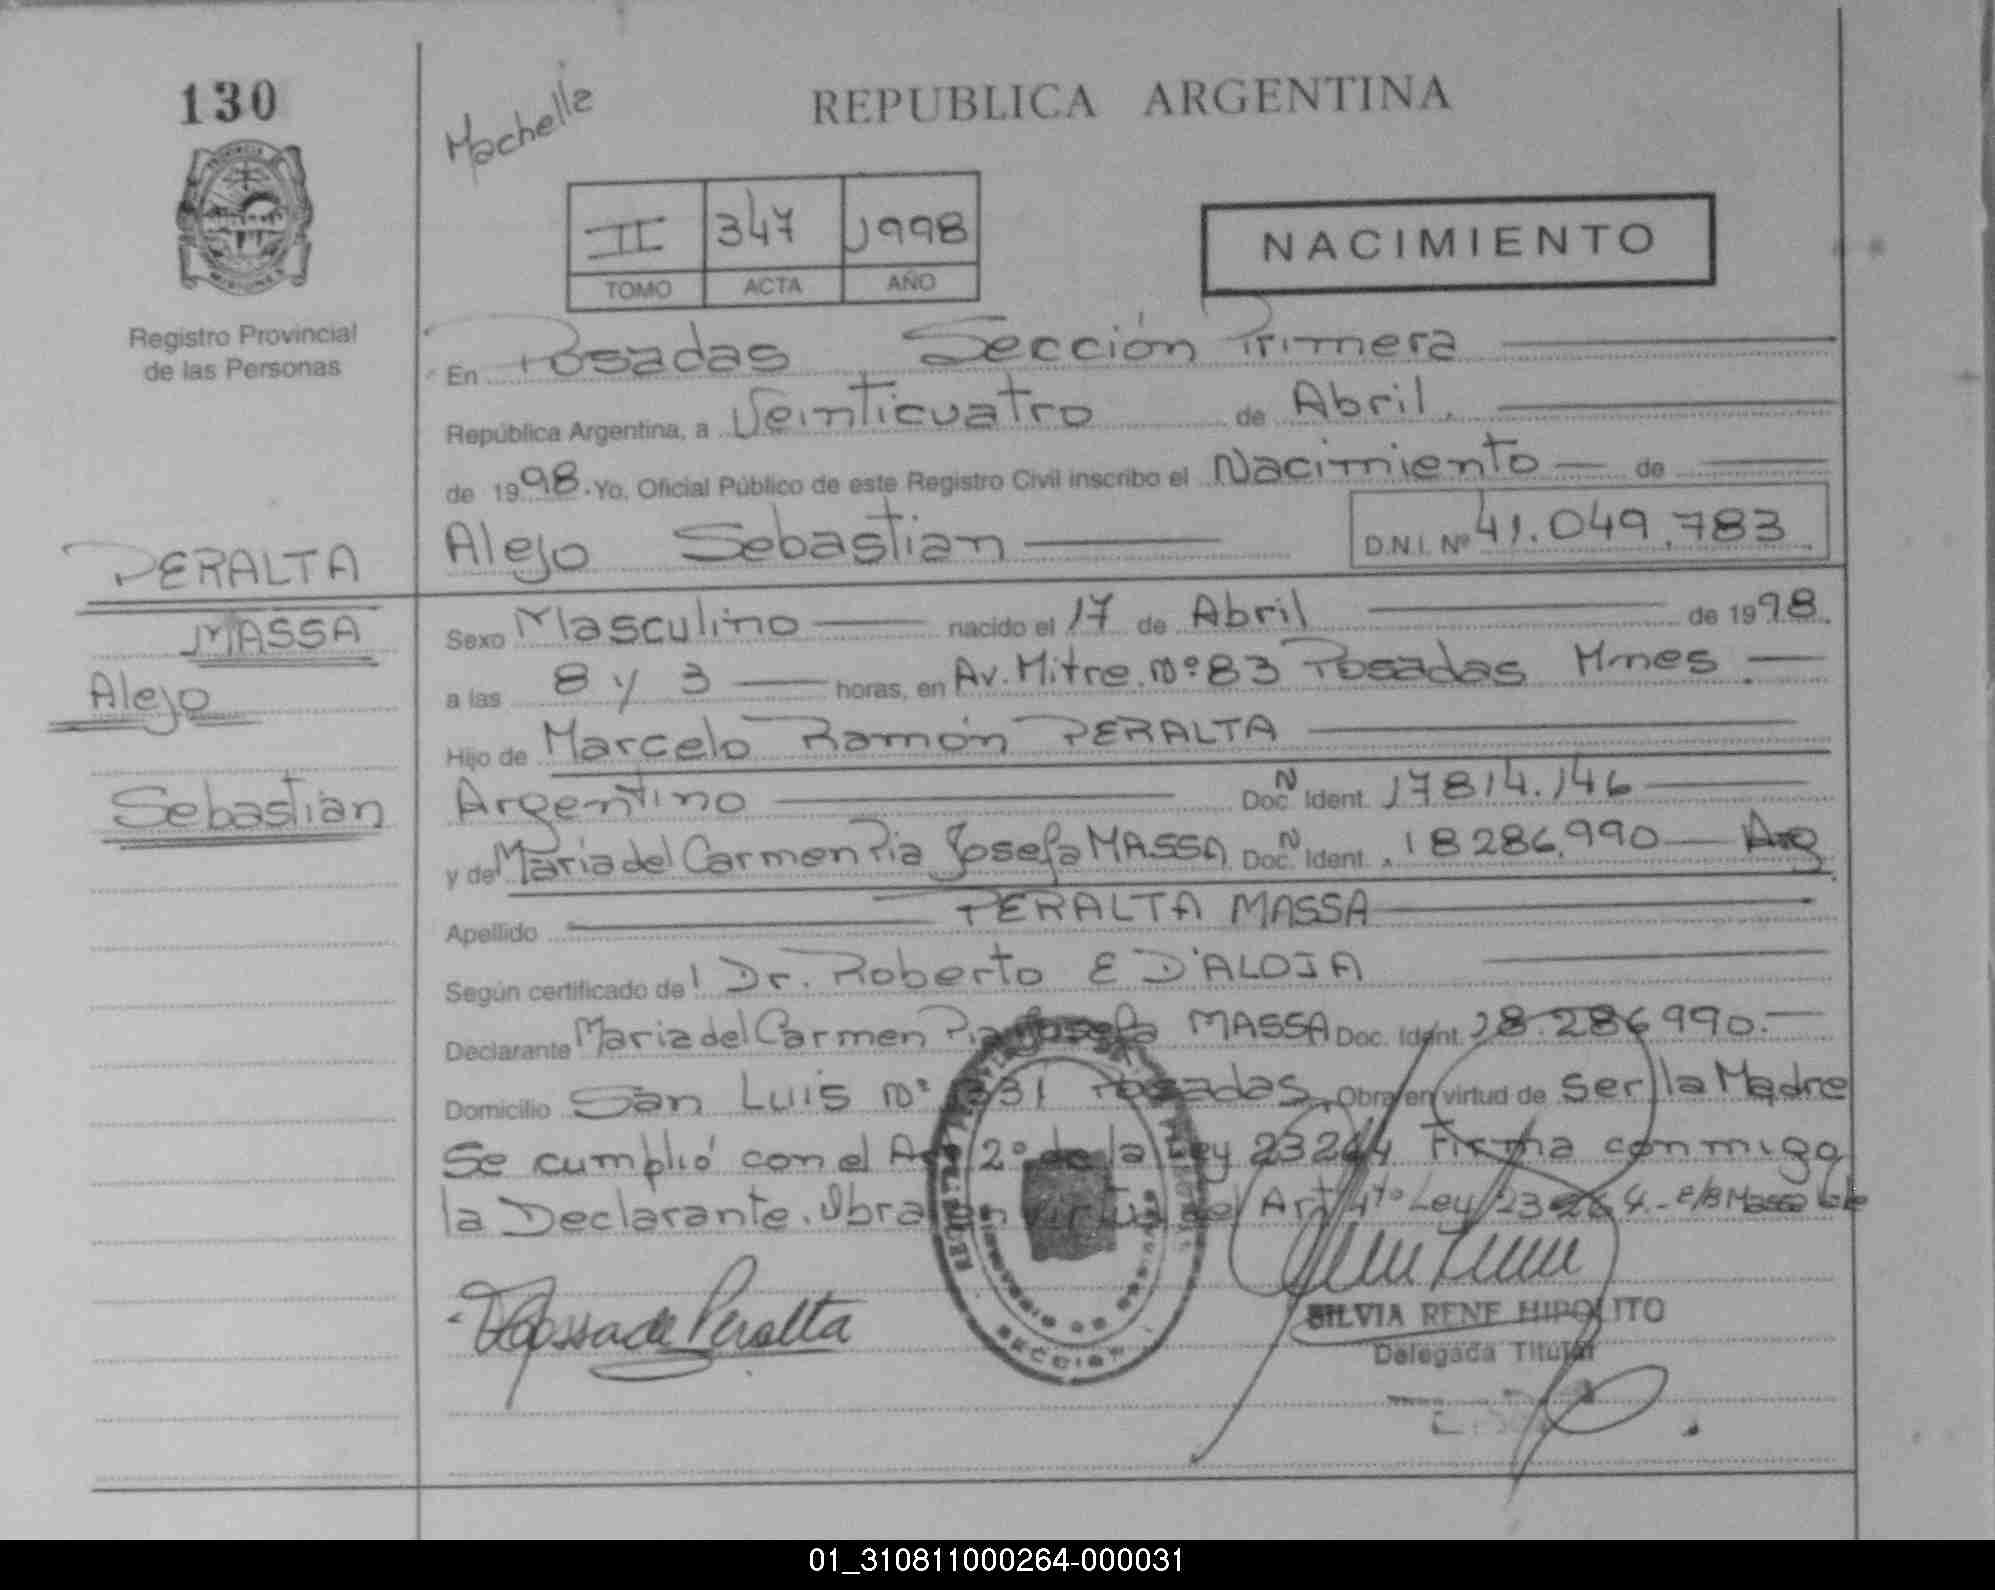 130
Machelle
REPUBLICA ARGENTINA
II 347 1998
TOMO ACTA AÑO
NACIMIENTO
Registro Provincial
de las Personas
En Posadas Sección Primera
República Argentina, a Veinticuatro de Abril.
de 1998. Yo, Oficial Público de este Registro Civil inscribo el Nacimiento de
Alejo Sebastian D.N.I. Nº 41.049.783
PERALTA
MASSA
Alejo
Sebastián
Sexo Masculino nacido el 17 de Abril de 1998.
a las 8 y 3 horas, en Av. Mitre. Nº 83 Posadas Mnes.
Hijo de Marcelo Ramón PERALTA
Argentino Doc. N Ident. 17814.146
y de Maria del Carmen Pia Josefa MASSA Doc. N Ident. 18286.990 Arg
Apellido PERALTA MASSA
Según certificado del Dr. Roberto E D'ALOIA
Declarante Maria del Carmen Pia Josefa MASSA Doc. Ident. 18.286990.
Domicilio San Luis Nº Posadas. Obra en virtud de Ser la Madre
Se cumplió con el Art 2º de la Ley 23264 Firma conmigo
la Declarante. Obra en virtud del Art 4to Ley 23264. E/B Massa Vale
Massa de Peralta
SILVIA RENE HIPOLITO
Delegada Titular
SECCION
01_310811000264-000031